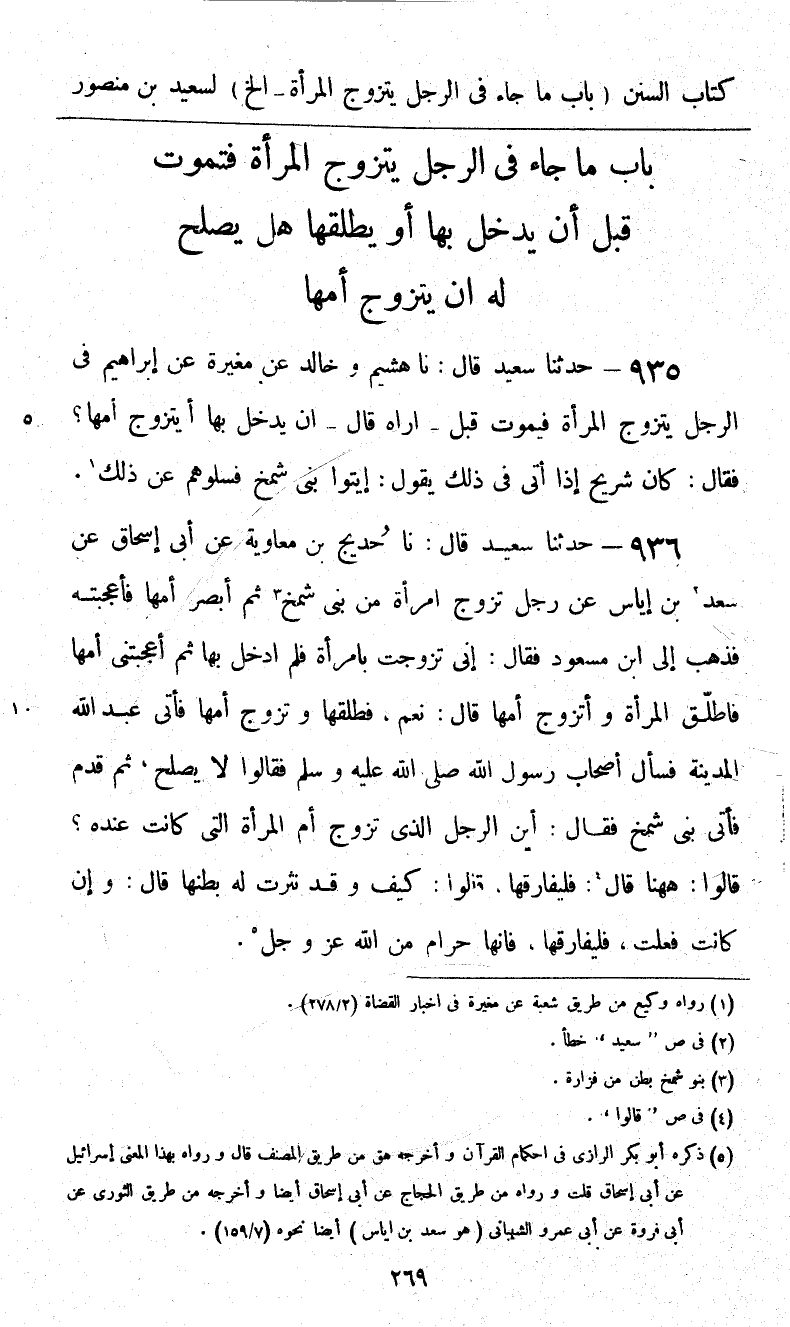 كتاب السنن ( باب ما جاء فى الرجل يتزوج المرأة ـ الخ ) لسعيد بن منصور
باب ما جاء فى الرجل يتزوج المرأة فتموت
قبل أن يدخل بها أو يطلقها هل يصلح
له ان يتزوج أمها
٩٣٥ – حدثنا سعيد قال : نا هشيم و خالد عن مغيرة عن إبراهيم فى
الرجل يتزوج المرأة فيموت قبل ـ اراه قال ـ ان يدخل بها أ يتزوج أمها ؟ ٥
فقال : كان شريح إذا أتى فى ذلك يقول : إيتوا بنى شمخ فسلوهم عن ذلك١ .
٩٣٦ – حدثنا سعيـد قال : نا حُديج بن معاوية عن أبى إسحاق عن
سعد٢ بن إياس عن رجل تزوج امرأة من بنى شمخ٣ ثم أبصر أمها فأعجبتـه
فذهب إلى ابن مسعود فقال : إنى تزوجت بامرأة فلم ادخل بها ثم أعجبتنى أمها
فاطلّـق المرأة و أتزوج أمها قال : نعم ، فطلقها و تزوج أمها فأتى عبـد الله ١٠
المدينة فسأل أصحاب رسول الله صلى الله عليه و سلم فقالوا لا يصلح ، ثم قدم
فأتى بنى شمخ فقـال : أين الرجل الذى تزوج أم المرأة التى كانت عنده ؟
قالوا : ههنا قال٤ : فليفارقها ، قالوا : كيف و قـد نثرت له بطنها قال : و إن
كانت فعلت ، فليفارقها ، فانها حرام من الله عز و جل٥ .
(١) رواه وكيع من طريق شعبة عن مغيرة فى اخبار القضاة (٢٧٨/٢) .
(٢) فى ص ” سعيد “ خطأ .
(٣) بنو شمخ بطن من فزارة .
(٤) فى ص ” قالوا “ .
(٥) ذكره أبو بكر الرازى فى احكام القرآن و أخرجه هق من طريق المصنف قال و رواه بهذا المعنى إسرائيل
عن أبى إسحاق قلت و رواه من طريق الحجاج عن أبى إسحاق أيضا و أخرجه من طريق الثورى عن
أبى فروة عن أبى عمرو الشيبانى ( هو سعد بن اياس ) أيضا نحوه (١٥٩/٧) .
٢٦٩